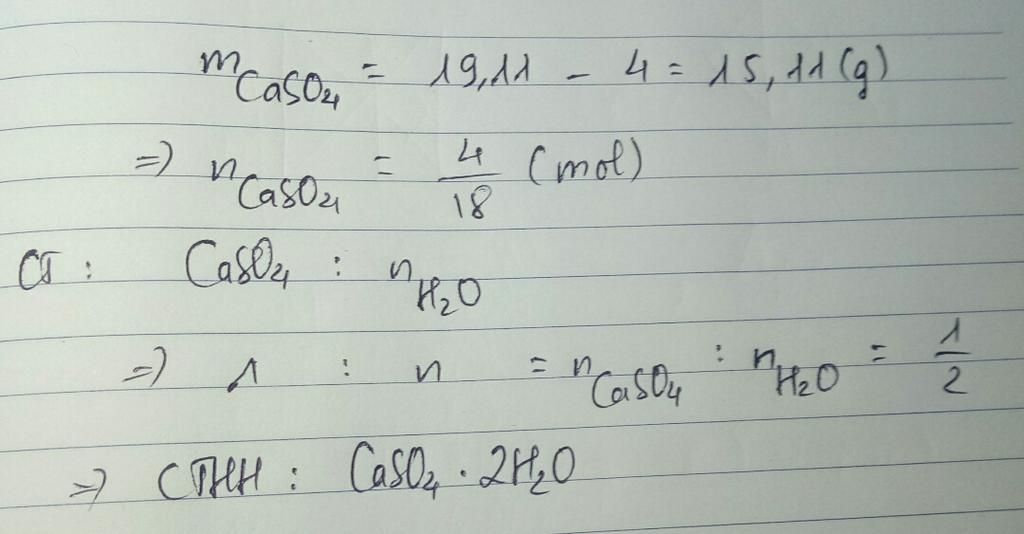 m CaSO4 = 19,11 - 4 = 15,11 (g)
=> n CaSO4 = 4/18 (mol)
CT : CaSO4 : n H2O
=> 1 : n = n CaSO4 : n H2O = 1/2
=> CTHH : CaSO4 . 2H2O